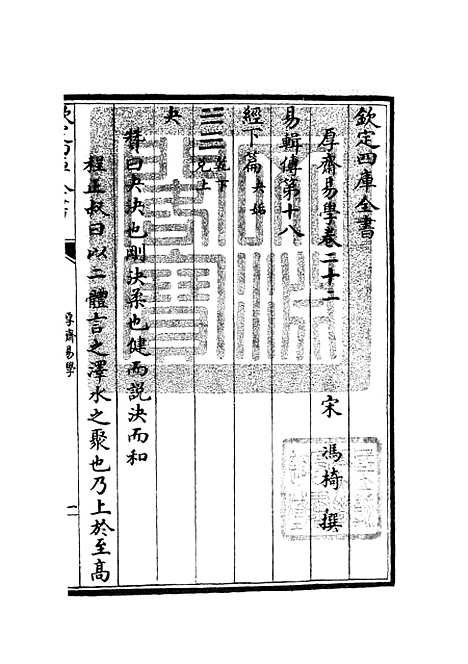 欽定四庫全書
厚齋易學卷二十二　宋　馮椅　撰
易輯傳第十八
經下篇夬姤
乾下兌上
夬
贊曰夬決也剛決柔也健而說決而和
程正叔曰以二體言之澤水之聚也乃上於至高
厚齋易學
一